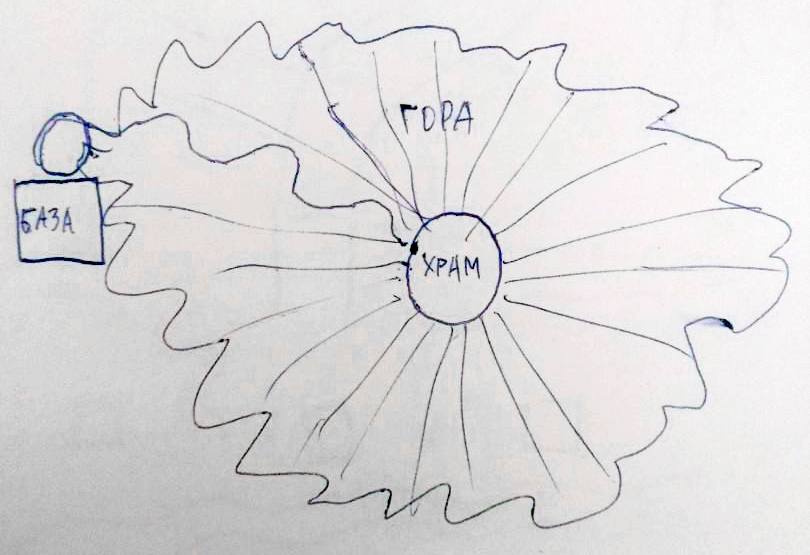 ГОРА
БАЗА
ХРАМ